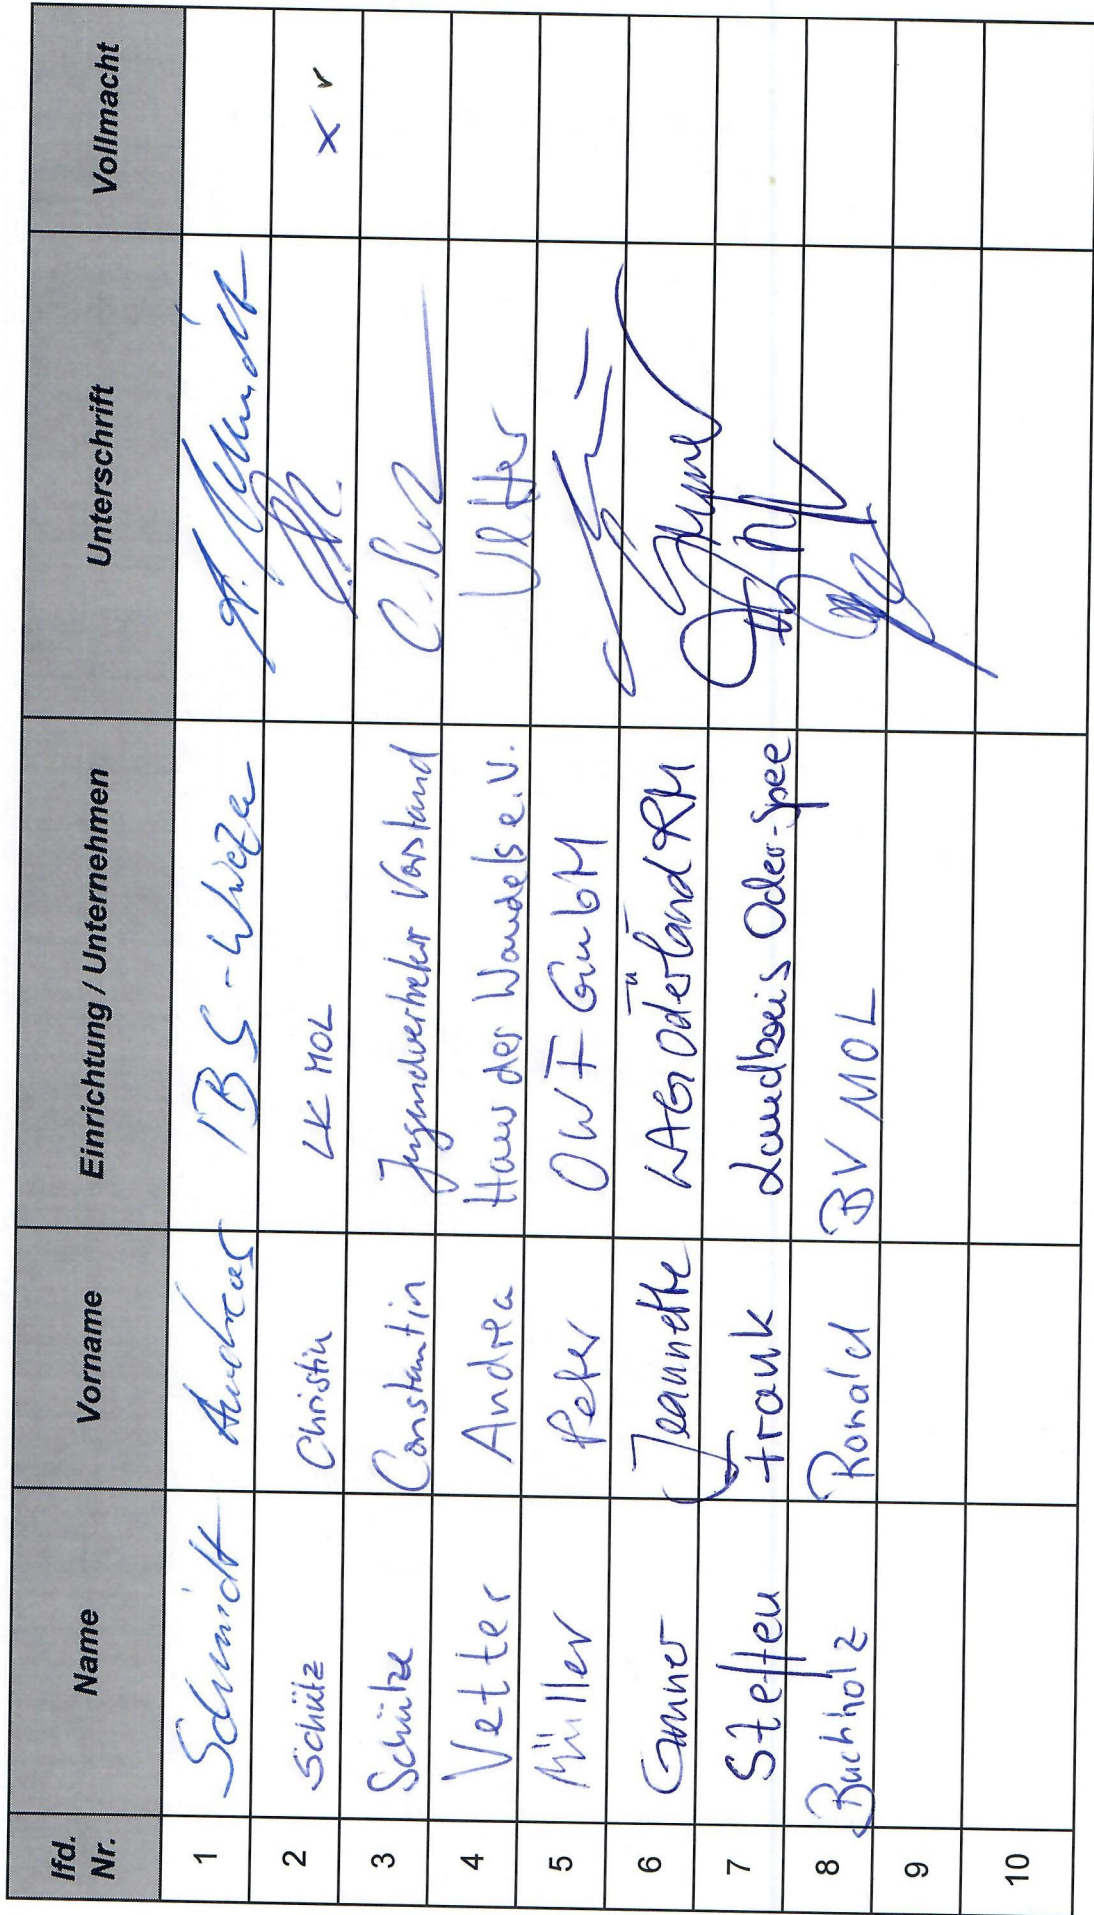 lfd. Nr. Name Vorname Einrichtung / Unternehmen Unterschrift Vollmacht
1 Schmidt Andreas IBS - A. Schmidt
2 Schütz Christin LK MOL x v
3 Schütze Constantin Jugendvertreter Vorstand
4 Vetter Andrea Haus des Wandels e.V. Vetter
5 Müller Peter OWF GmbH
6 Jeannette LAG Oderland
7 Steffen Frank Landkreis Oder-Spee
8 Buchholz Ronald BV MOL
9
10